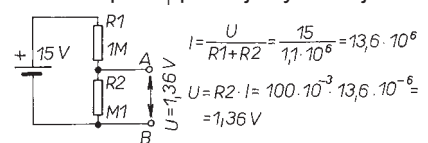 +
15 V
R1
1M
A
R2
M1
B
U=1,36V
I = U / R1+R2 = 15 / 1,1 · 10⁶ = 13,6 · 10⁶
U = R2 · I = 100 · 10⁻³ · 13,6 · 10⁻⁶ =
= 1,36 V